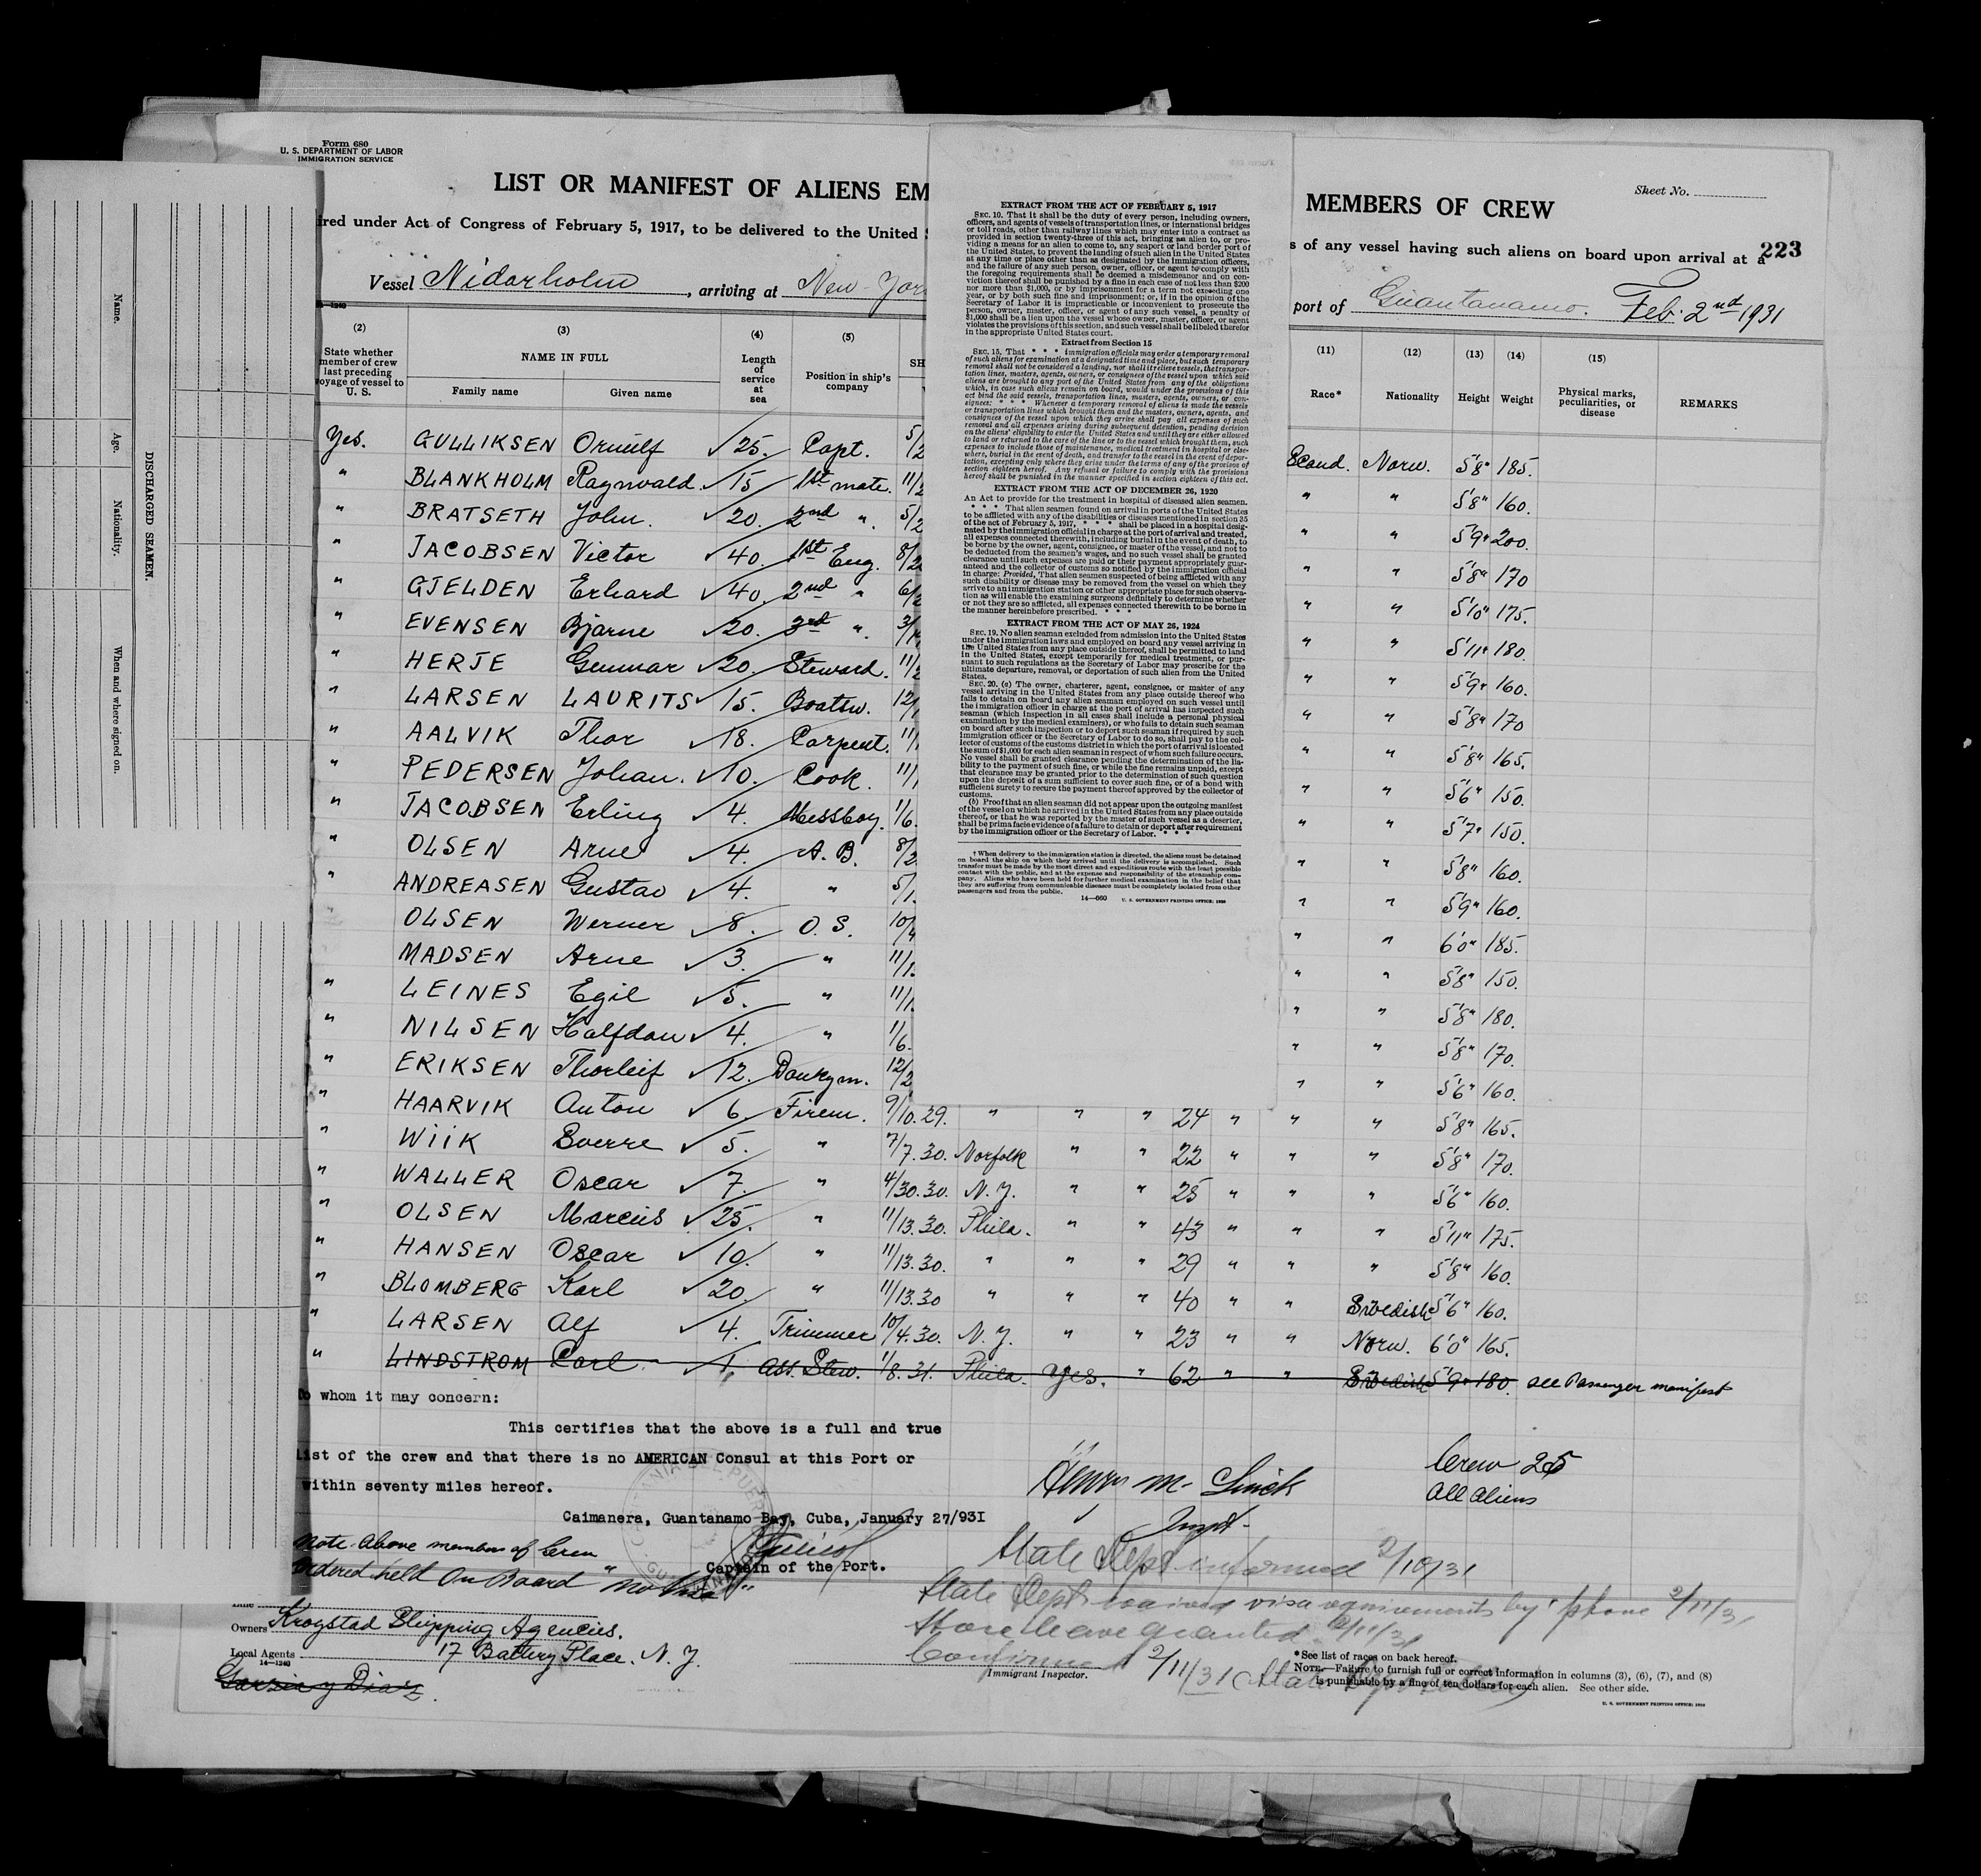 Form 680
U. S. DEPARTMENT OF LABOR
IMMIGRATION SERVICE
LIST OR MANIFEST OF ALIENS EM
MEMBERS OF CREW
Sheet No.
223
ired under Act of Congress of February 5, 1917, to be delivered to the United S
s of any vessel having such aliens on board upon arrival at a
Vessel Nidarholm, arriving at New-Yor
port of Guantanamo. Feb. 2nd 1931
(2) (3) (4) (5) (11) (12) (13) (14) (15)
State whether member of crew last preceding voyage of vessel to U. S.
NAME IN FULL
Family name Given name
Length of service at sea
Position in ship's company
SH
Race* Nationality Height Weight
Physical marks, peculiarities, or disease
REMARKS
Yes. GULLIKSEN 25. Capt. 5/2 Scand. Norw. 5'8" 185.
" BLANKHOLM Ragnvald 15 1st mate. 11/2 " " 5'8" 160.
" BRATSETH John. 20. 2nd ". 5/2 " " 5'9" 200.
" JACOBSEN Victor 40. 1st Eng. 8/2 " " 5'8" 170
" GJELDEN Erhard 40. 2nd " 6/2 " " 5'10" 175.
" EVENSEN Bjarne 20. 3rd ". 3/1 " " 5'11" 180.
" HERJE Gunnar 20. Steward. 11/2 " " 5'9" 160.
" LARSEN LAURITS 15. Boatsw. 12/1 " " 5'8" 170
" AALVIK Thor 18. Carpent. 11/1 " " 5'8" 165.
" PEDERSEN Johan. 10. Cook. 11/1 " " 5'6" 150.
" JACOBSEN Erling 4. Messboy. 1/6. " " 5'7" 150.
" OLSEN Arne 4. A. B. 8/2 " " 5'8" 160.
" ANDREASEN Gustav 4. " 5/1. " " 5'9" 160.
" OLSEN Werner 8. O. S. 10/4 " " 6'0" 185.
MADSEN Arne 3. " 11/1. " " 5'8" 150.
" LEINES Egil 5. " 11/1. " " 5'8" 180.
" NILSEN Halfdan 4. " 1/6. " " 5'8" 170.
" ERIKSEN Thorleif 12. Donkym. 12/2 " " 5'6" 160.
" HAARVIK Anton 6 Firem. 9/10.29. " " " 24 " " " 5'8" 165.
" WIIK Boerre 5. " 7/7.30. Norfolk " " 22 " " " 5'8" 170.
" WALLER Oscar 7. " 4/30.30. N.Y. " " 25 " " " 5'6" 160.
" OLSEN Marcus 25. " 11/13.30. Phila. " " 43 " " " 5'11" 175.
" HANSEN Oscar 10. " 11/13.30. " " " 29 " " " 5'8" 160.
" BLOMBERG Karl 20. " 11/13.30 " " " 40 " " Swedish 5'6" 160.
" LARSEN Alf 4. Trimmer 10/4.30. N.Y. " " 23 " " Norw. 6'0" 165.
" LINDSTROM Carl 1. Ass. Stew. 1/8.31. Phila. Yes. " 62 " " Swedish 5'9" 180. see Passenger manifest
To whom it may concern:
This certifies that the above is a full and true
list of the crew and that there is no AMERICAN Consul at this Port or
within seventy miles hereof.
Caimanera, Guantanamo Bay, Cuba, January 27/931
Captain of the Port.
Note- above members of Crew
ordered held on Board "no visa"
Crew 25
All aliens
Inspt-
State Dept informed 2/10/31
State Dept waived visa requirements by 'phone 2/11/31
Shore leave granted. 2/11/31
Owners Krogstad Shipping Agencies.
Local Agents 17 Battery Place. N.Y.
14-1240
Immigrant Inspector.
2/11/31
*See list of races on back hereof.
NOTE.—Failure to furnish full or correct information in columns (3), (6), (7), and (8)
is punishable by a fine of ten dollars for each alien. See other side.
U. S. GOVERNMENT PRINTING OFFICE: 1930
DISCHARGED SEAMEN.
Name. Age. Nationality. When and where signed on.
EXTRACT FROM THE ACT OF FEBRUARY 5, 1917
SEC. 10. That it shall be the duty of every person, including owners,
officers, and agents of vessels of transportation lines, or international bridges
or toll roads, other than railway lines which may enter into a contract as
provided in section twenty-three of this act, bringing an alien to, or pro-
viding a means for an alien to come to, any seaport or land border port of
the United States, to prevent the landing of such alien in the United States
at any time or place other than as designated by the immigration officers,
and the failure of any such person, owner, officer, or agent to comply with
the foregoing requirements shall be deemed a misdemeanor and on con-
viction thereof shall be punished by a fine in each case of not less than $200
nor more than $1,000, or by imprisonment for a term not exceeding one
year, or by both such fine and imprisonment; or, if in the opinion of the
Secretary of Labor it is impracticable or inconvenient to prosecute the
person, owner, master, officer, or agent of any such vessel, a penalty of
$1,000 shall be a lien upon the vessel whose owner, master, officer, or agent
violates the provisions of this section, and such vessel shall be libeled therefor
in the appropriate United States court.
Extract from Section 15
SEC. 15. That * * * immigration officials may order a temporary removal
of such aliens for examination at a designated time and place, but such temporary
removal shall not be considered a landing, nor shall it relieve vessels, the transpor-
tation lines, masters, agents, owners, or consignees of the vessel upon which said
aliens are brought to any port of the United States from any of the obligations
which, in case such aliens remain on board, would under the provisions of this
act bind the said vessels, transportation lines, masters, agents, owners, or con-
signees: * * * Whenever a temporary removal of aliens is made the vessels
or transportation lines which brought them and the masters, owners, agents, and
consignees of the vessel upon which they arrive shall pay all expenses of such
removal and all expenses arising during subsequent detention, pending decision
on the aliens' eligibility to enter the United States and until they are either allowed
to land or returned to the care of the line or to the vessel which brought them, such
expenses to include those of maintenance, medical treatment in hospital or else-
where, burial in the event of death, and transfer to the vessel in the event of depor-
tation, excepting only where they arise under the terms of any of the provisos of
section eighteen hereof. Any refusal or failure to comply with the provisions
hereof shall be punished in the manner specified in section eighteen of this act.
EXTRACT FROM THE ACT OF DECEMBER 26, 1920
An Act to provide for the treatment in hospital of diseased alien seamen.
* * * That alien seamen found on arrival in ports of the United States
to be afflicted with any of the disabilities or diseases mentioned in section 35
of the act of February 5, 1917, * * * shall be placed in a hospital desig-
nated by the immigration official in charge at the port of arrival and treated,
all expenses connected therewith, including burial in the event of death, to
be borne by the owner, agent, consignee, or master of the vessel, and not to
be deducted from the seamen's wages, and no such vessel shall be granted
clearance until such expenses are paid or their payment appropriately guar-
anteed and the collector of customs so notified by the immigration official
in charge: Provided, That alien seamen suspected of being afflicted with any
such disability or disease may be removed from the vessel on which they
arrive to an immigration station or other appropriate place for such observa-
tion as will enable the examining surgeons definitely to determine whether
or not they are so afflicted, all expenses connected therewith to be borne in
the manner hereinbefore prescribed. * * *
EXTRACT FROM THE ACT OF MAY 26, 1924
SEC. 19. No alien seaman excluded from admission into the United States
under the immigration laws and employed on board any vessel arriving in
the United States from any place outside thereof, shall be permitted to land
in the United States, except temporarily for medical treatment, or pur-
suant to such regulations as the Secretary of Labor may prescribe for the
ultimate departure, removal, or deportation of such alien from the United
States.
SEC. 20. (a) The owner, charterer, agent, consignee, or master of any
vessel arriving in the United States from any place outside thereof who
fails to detain on board any alien seaman employed on such vessel until
the immigration officer in charge at the port of arrival has inspected such
seaman (which inspection in all cases shall include a personal physical
examination by the medical examiners), or who fails to detain such seaman
on board after such inspection or to deport such seaman if required by such
immigration officer or the Secretary of Labor to do so, shall pay to the col-
lector of customs of the customs district in which the port of arrival is located
the sum of $1,000 for each alien seaman in respect of whom such failure occurs.
No vessel shall be granted clearance pending the determination of the lia-
bility to the payment of such fine, or while the fine remains unpaid, except
that clearance may be granted prior to the determination of such question
upon the deposit of a sum sufficient to cover such fine, or of a bond with
sufficient surety to secure the payment thereof approved by the collector of
customs.
(b) Proof that an alien seaman did not appear upon the outgoing manifest
of the vessel on which he arrived in the United States from any place outside
thereof, or that he was reported by the master of such vessel as a deserter,
shall be prima facie evidence of a failure to detain or deport after requirement
by the immigration officer or the Secretary of Labor. * * *
† When delivery to the immigration station is directed, the aliens must be detained
on board the ship on which they arrived until the delivery is accomplished. Such
transfer must be made by the most direct and expeditious route with the least possible
contact with the public, and at the expense and responsibility of the steamship com-
pany. Aliens who have been held for further medical examination in the belief that
they are suffering from communicable diseases must be completely isolated from other
passengers and from the public.
14—660 U. S. GOVERNMENT PRINTING OFFICE: 1930